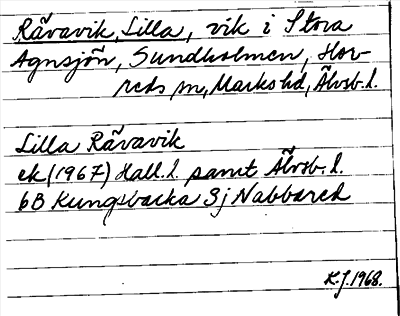 Rävavik, Lilla, vik i Stora
Agnsjön, Sundholmen, Hor-
reds sn, Marks hd, Älvsb. l.
Lilla Rävavik
ek (1967) Hall. l. samt Älvsb. l.
6B Kungsbacka 3j Nabbared
K.J. 1968.